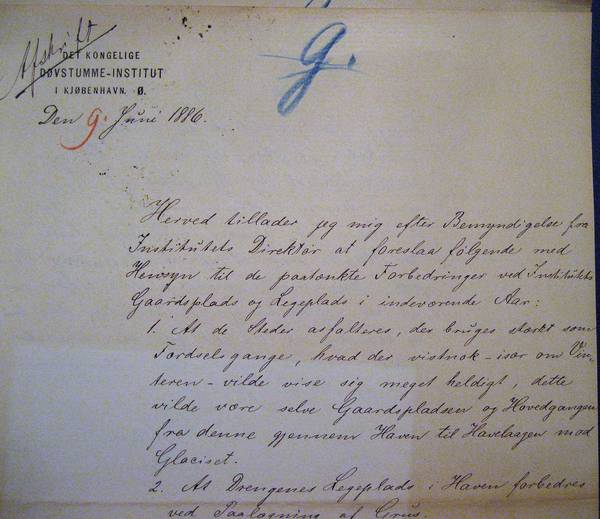 Afskrift
g.
DET KONGELIGE
DØVSTUMME-INSTITUT
I KJØBENHAVN. Ø.
Den 9. Juni 1886.
Herved tillader jeg mig efter Bemyndigelse fra
Institutets Direktør at foreslaa følgende med
Hensyn til de paatænkte Forbedringer ved Institutets
Gaardsplads og Legeplads i indeværende Aar:
1. At de Steder asfalteres, der bruges stærkt som
Færdselsgange, hvad der vistnok - især om Vin-
teren - vilde vise sig meget heldigt, dette
vilde være selve Gaardspladsen og Hovedgangen
fra denne gjennem Haven til Havelaagen mod
Glaciset.
2. At Drengenes Legeplads i Haven forbedres
ved Paalægning af Grus.